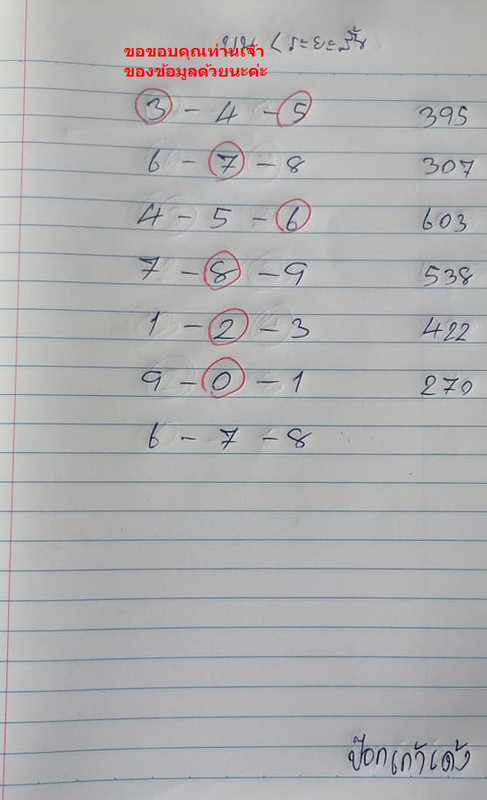 บน (ระยะสั้น
ขอขอบคุณท่านเจ้า
ของข้อมูลด้วยนะค่ะ
3 - 4 - 5 395
6 - 7 - 8 307
4 - 5 - 6 603
7 - 8 - 9 538
1 - 2 - 3 422
9 - 0 - 1 270
6 - 7 - 8
ป๊อกเก้าเด้ง